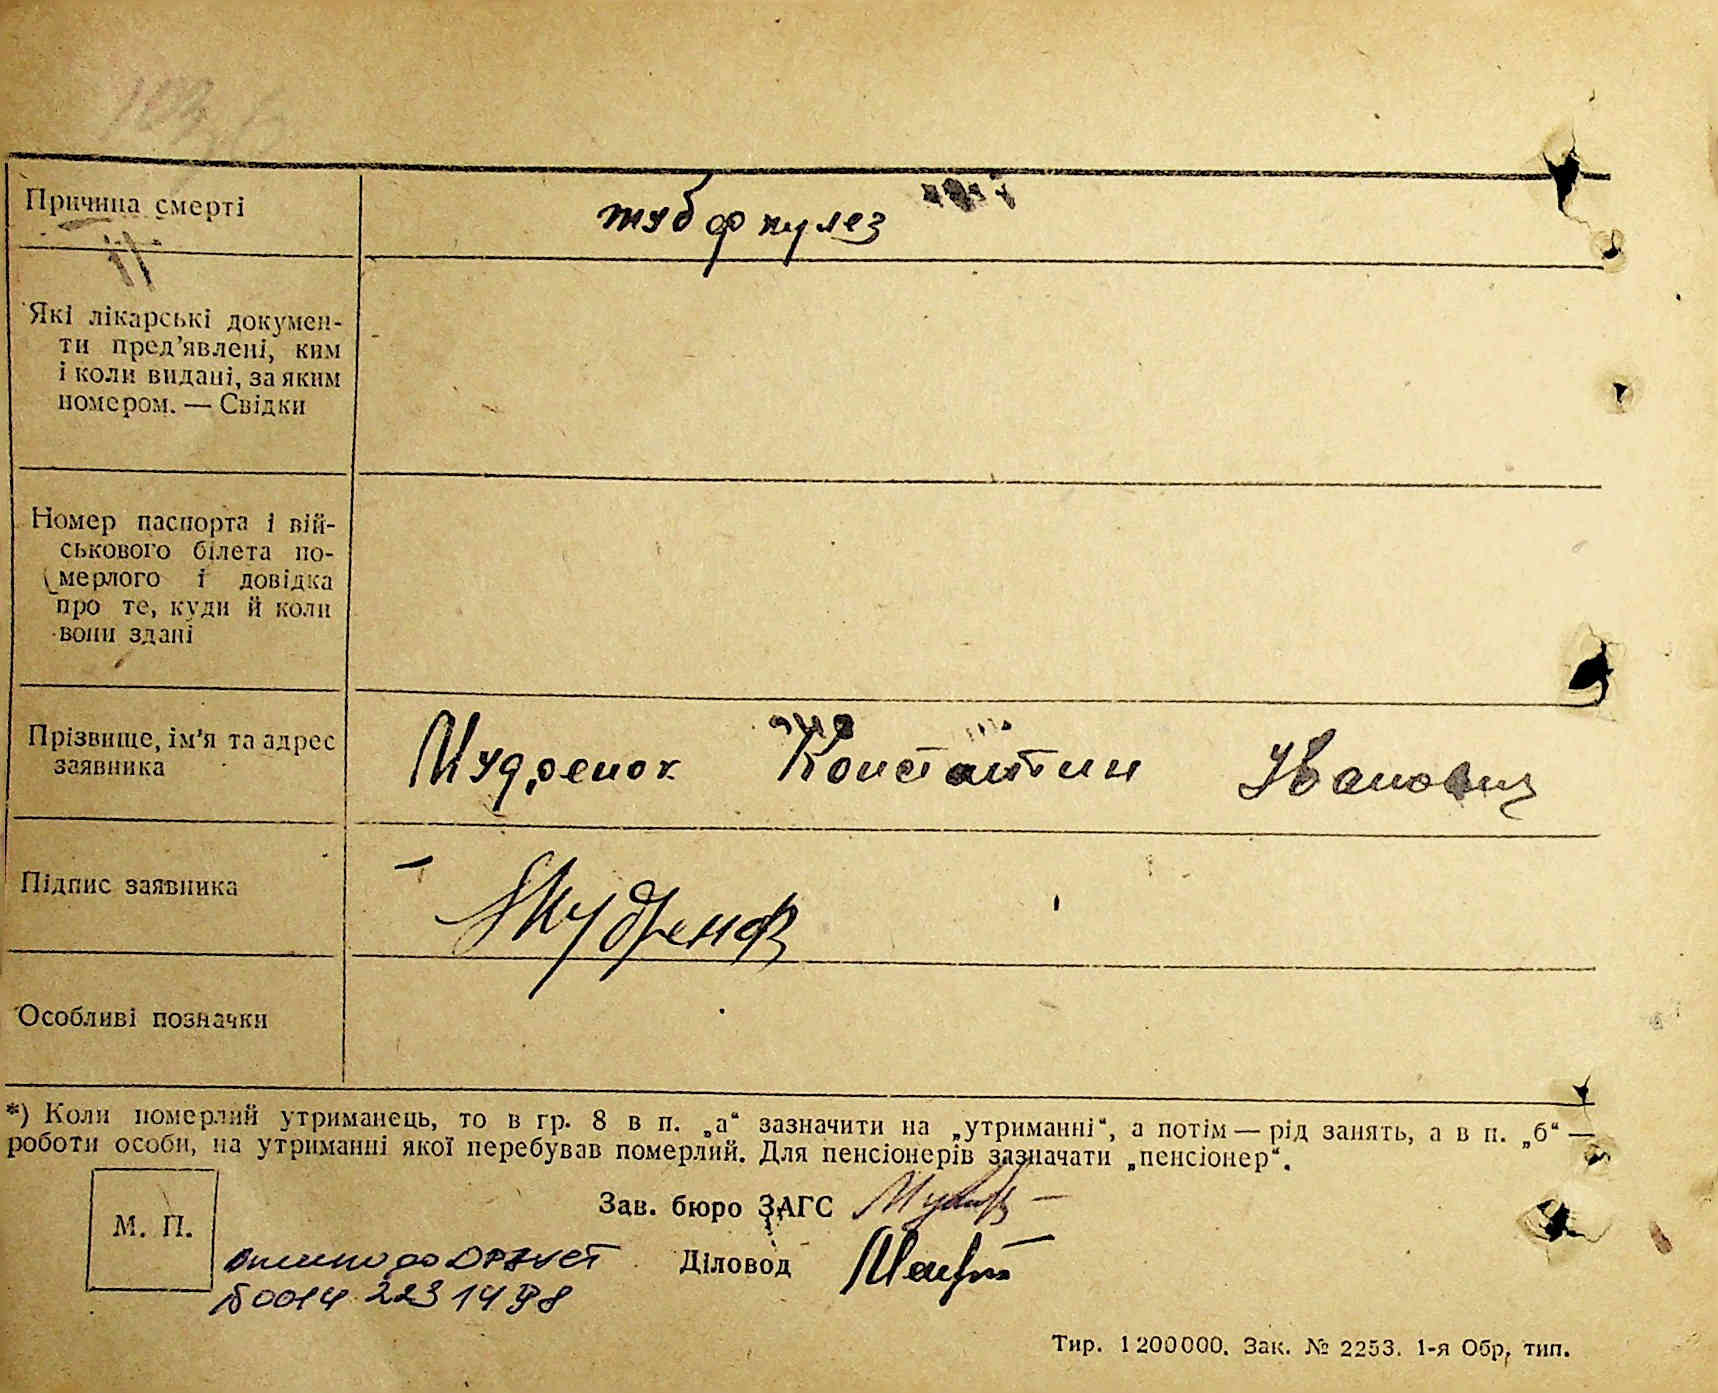 Причина смерті
тубфкулез
Які лікарські докумен-
ти пред'явлені, ким
і коли видані, за яким
номером. — Свідки
Номер паспорта і вій-
ськового білета по-
мерлого і довідка
про те, куди й коли
вони здані
Прізвище, ім'я та адрес
заявника
Мудренок Константин Іванович
Підпис заявника
Мудренок
Особливі позначки
*) Коли померлий утриманець, то в гр. 8 в п. „а“ зазначити на „утриманні“, а потім — рід занять, а в п. „б“ —
роботи особи, на утриманні якої перебував померлий. Для пенсіонерів зазначати „пенсіонер“.
Зав. бюро ЗАГС
М. П.
Діловод
00014 2231498
Тир. 1200000. Зак. № 2253. 1-я Обр, тип.